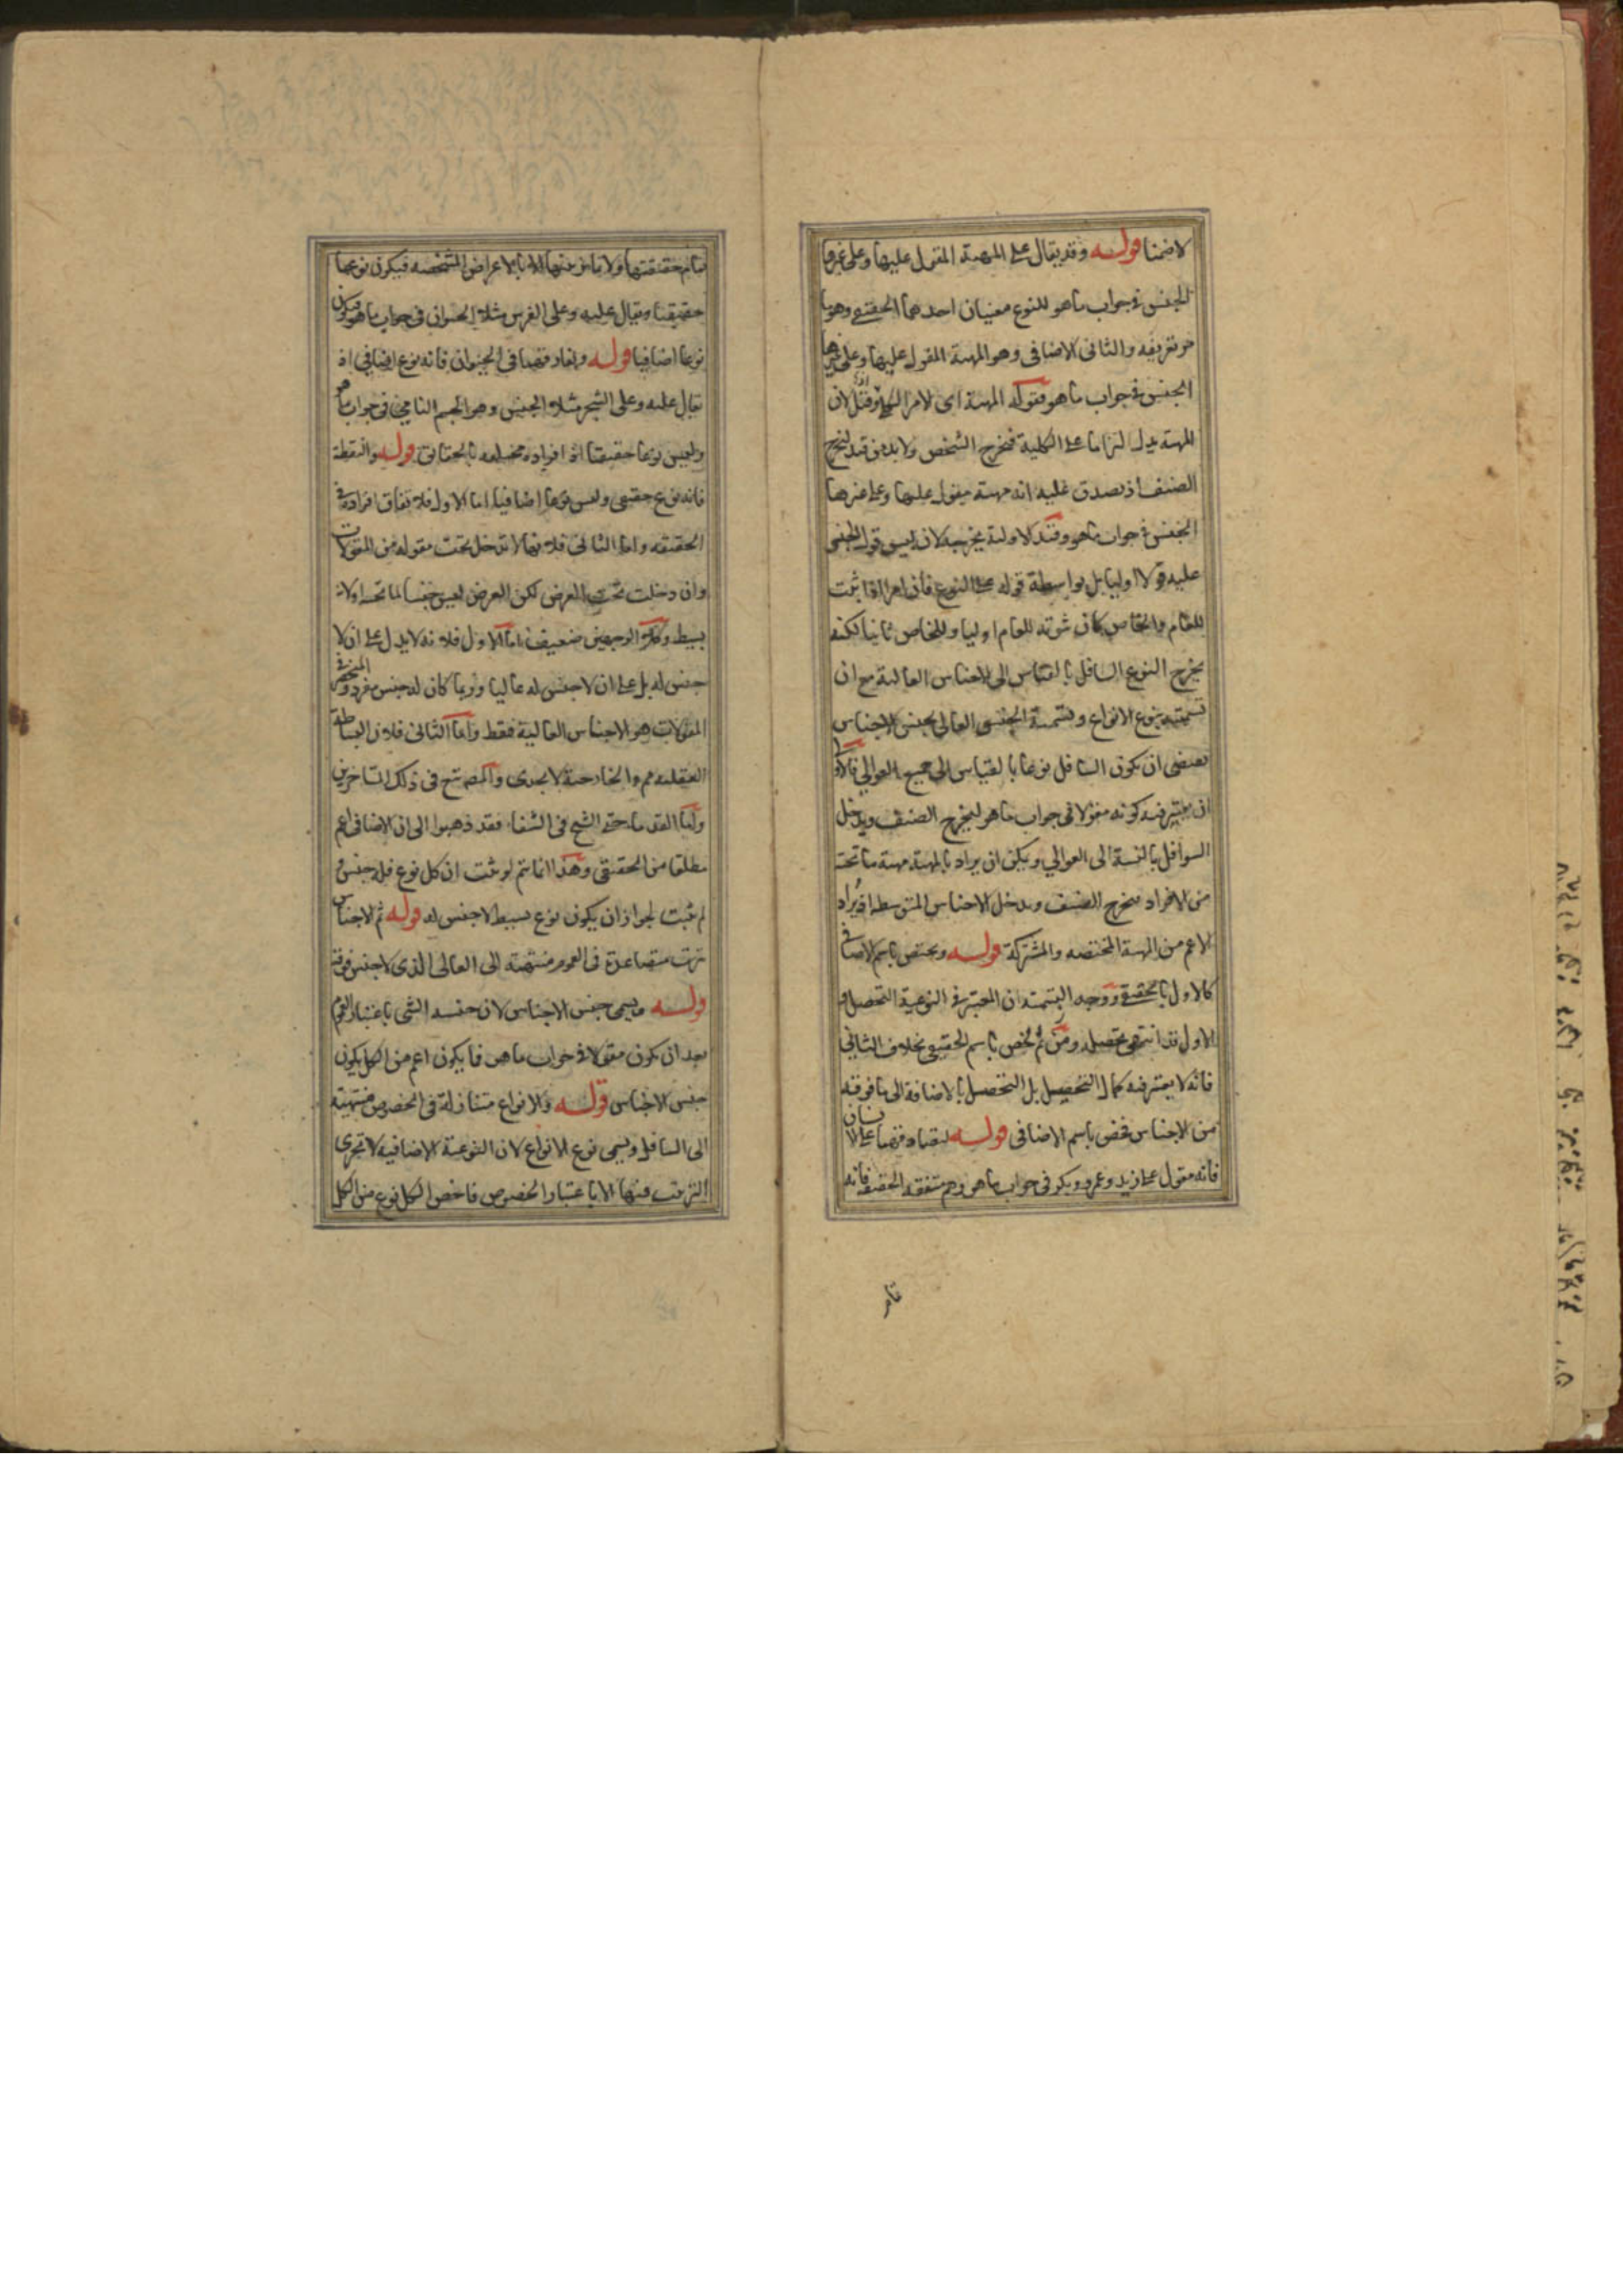 لا ضمنا قوله وقد يقال على المهية المقول عليها وعلى غيرها
الجنس فى جواب ما هو للنوع معنيان احدهما الحقيقى وهو ما
مر تعريفه والثانى الاضافى وهو المهية المقول عليها وعلى غيرها
الجنس فى جواب ما هو فقوله المهية اى الامر الكلى وقيل لان
المهية يدل التزاما على الكلية فخرج الشخص ولا بد من قيد ليخرج
الصنف اذ يصدق عليه انه مهية مقول عليها وعلى غيرها
الجنس فى جواب ما هو وقيد الاولية يخرجه لان ليس قول الجنس
عليه قولا اوليا بل بواسطة قوله على النوع فان امرا اذا ثبت
للعام والخاص كان ثبوته للعام اوليا وللخاص ثانيا لكنه
يخرج النوع السافل بالقياس الى الاجناس العالية مع ان
تسميته بنوع الانواع وتسمية الجنس العالى بجنس الاجناس
تقتضى ان يكون السافل نوعا بالقياس الى جميع العوالى فالاولى
ان يعتبر فيه كونه مقولا فى جواب ما هو ليخرج الصنف ويدخل
السوافل بالنسبة الى العوالى ويمكن ان يراد بالمهية مهية ما تحته
من الافراد فيخرج الصنف ويدخل الاجناس المتوسطه اذ يراد
الاعم من المهية المختصه والمشتركة قوله ويختص باسم الاضافى
كالاول بالحقيقى ووجه التسمية ان المعتبر فى النوعية التحصل و
الاول قد انتهى تحصله ومن ثم خص باسم الحقيقى بخلاف الثانى
فانه لا يعتبر فيه كمال التحصيل بل التحصل بالاضافة الى ما فوقه
من الاجناس فخص باسم الاضافى قوله لتصادقهما على الانسان
فانه مقول على زيد وعمرو وبكر فى جواب ما هو وهم متفقه الحقيقه فانه
تمام حقيقتها ولا تمايز بينها الا بالاعراض المشخصه فيكون نوعا
حقيقيا ويقال عليه وعلى الفرس مثلا الحيوان فى جواب ما هو فيكون
نوعا اضافيا قوله وتفارقهما فى الحيوان فانه نوع اضافى اذ
يقال عليه وعلى الشجر مثلا الجنس وهو الجسم النامى فى جواب ما هو
وليس نوعا حقيقيا اذ افراده مختلفه بالحقايق قوله والنقطة
فانه نوع حقيقى وليس نوعا اضافيا اما الاول فلاتفاق افراده فى
الحقيقه واما الثانى فلانها لا تدخل تحت مقوله من المقولات
وان دخلت تحت العرض لكن العرض ليس جنسا لما تحته اولانه
بسيط وكلا الوجهين ضعيف اما الاول فلانه لا يدل على ان لا
جنس له بل على ان لا جنس له عاليا وربما كان له جنس مفرد والمنحصر فى
المقولات هو الاجناس العالية فقط واما الثانى فلان البساطة
العقليه مم والخارجية لا يجدى والمصـ تبع فى ذلك المتاخرين
واما القدماء حتى الشيخ فى الشفاء فقد ذهبوا الى ان الاضافى اعم
مطلقا من الحقيقى وهذا انما يتم لو ثبت ان كل نوع فله جنس و
لم يثبت لجواز ان يكون نوع بسيط لا جنس له قوله ثم الاجناس
ترتب متصاعدة فى العموم منتهيته الى العالى الذى لا جنس فوقه
قوله ويسمى جنس الاجناس لان جنسيه الشى باعتبار العموم
بعد ان يكون مقولا فى جواب ما هو فما يكون اعم من الكل يكون
جنس الاجناس قوله والانواع متنازلة فى الخصوص منتهيته
الى السافل ويسمى نوع الانواع لان النوعية الاضافيه لا تجرى
الترتيب فيها الا باعتبار الخصوص فاخص الكل نوع من الكل